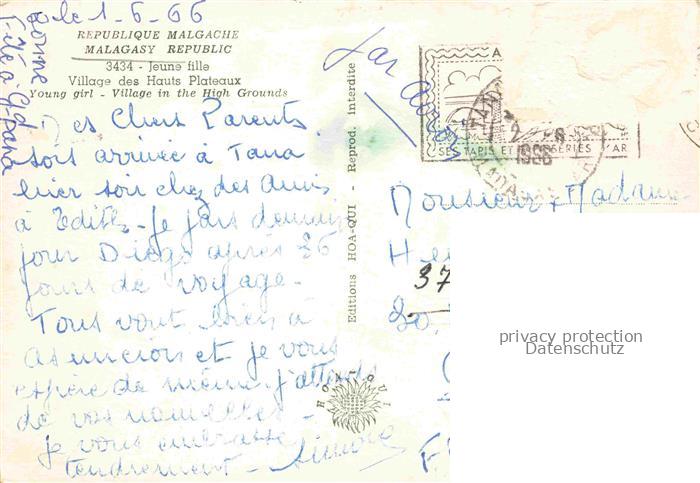 le 1-6-66
REPUBLIQUE MALGACHE
MALAGASY REPUBLIC
3434 - Jeune fille
Village des Hauts Plateaux
Young girl - Village in the High Grounds
bonne
Fête à papa
Mes Chers Parents
suis arrivée à Tana
hier soir chez des amis
à Edith. Je pars demain
pour Diego après 26
jours de voyage.
Tous vont bien à
et je vous
espère de même j'attends
de vos nouvelles -
je vous embrasse
tendrement - Simone
Editions HOA-QUI - Reprod. Interdite
HOA-QUI
Par Avion
SES TAPIS ET
SERIES D'AR
1966
Monsieur, Madame
He
37
F.
privacy protection
Datenschutz